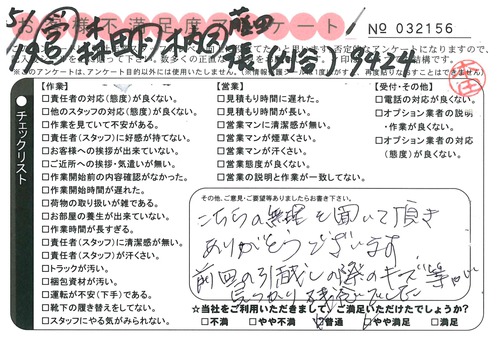 お客様不満足度アンケート
№ 032156
チェックリスト
【作業】
□責任者の対応(態度)が良くない。
□他のスタッフの対応(態度)が良くない。
□作業を見ていて不安がある。
□責任者(スタッフ)に好感が持てない。
□お客様への挨拶が出来ていない。
□ご近所への挨拶・気遣いが無い。
□作業開始前の内容確認がなかった。
□作業開始時間が遅れた。
□荷物の取り扱いが雑である。
□お部屋の養生が出来ていない。
□作業時間が長すぎる。
□責任者(スタッフ)に清潔感が無い。
□責任者(スタッフ)が汗くさい。
□トラックが汚い。
□梱包資材が汚い。
□運転が不安(下手)である。
□靴下の履き替えをしてない。
□スタッフにやる気がみられない。
【営業】
□見積もり時間に遅れた。
□見積もり時間が長い。
□営業マンに清潔感が無い。
□営業マンが煙草くさい。
□営業マンが汗くさい。
□営業態度が良くない。
□営業の説明と作業が一致してない。
【受付・その他】
□電話の対応が良くない。
□オプション業者の説明
・作業が良くない。
□オプション業者の対応
(態度)が良くない。
その他、ご意見・ご要望等ありましたらお書き下さい。
こちらの無理を聞いて頂き
ありがとうございます
前回の引越しの際のキズ等が
見つかり残念でした
☆当社をご利用いただきまして、ご満足いただけたでしょうか?
□不満 □やや不満 □普通 □やや満足 □満足